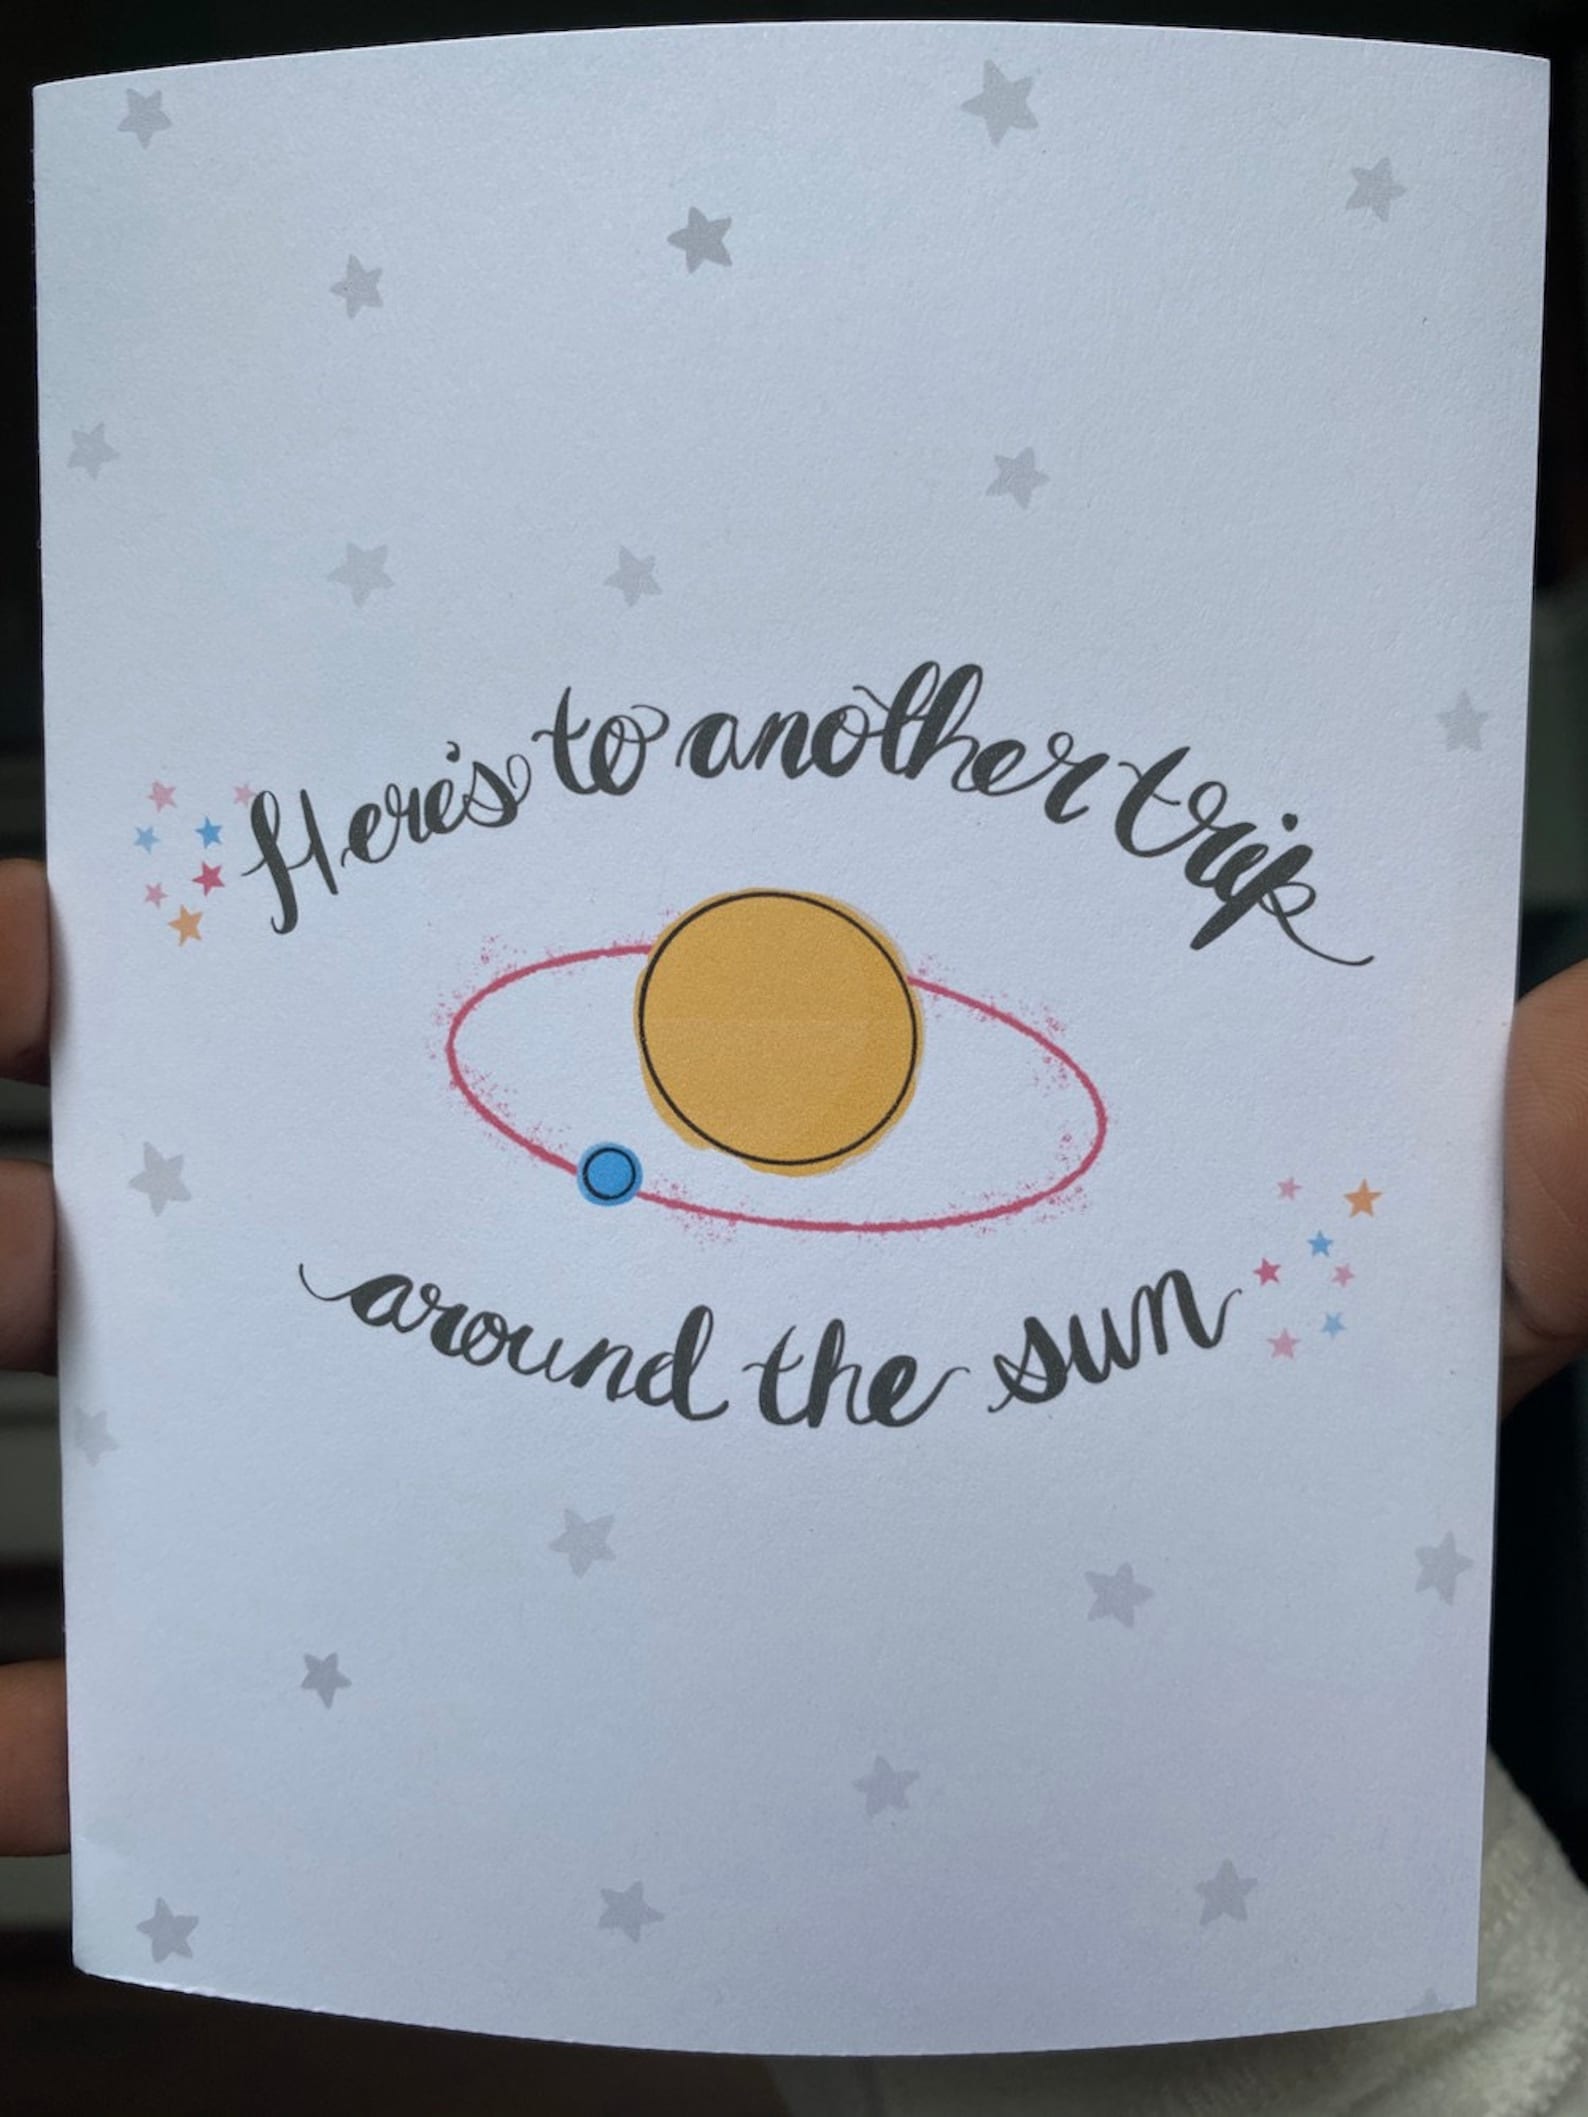 Here's to another trip
around the sun